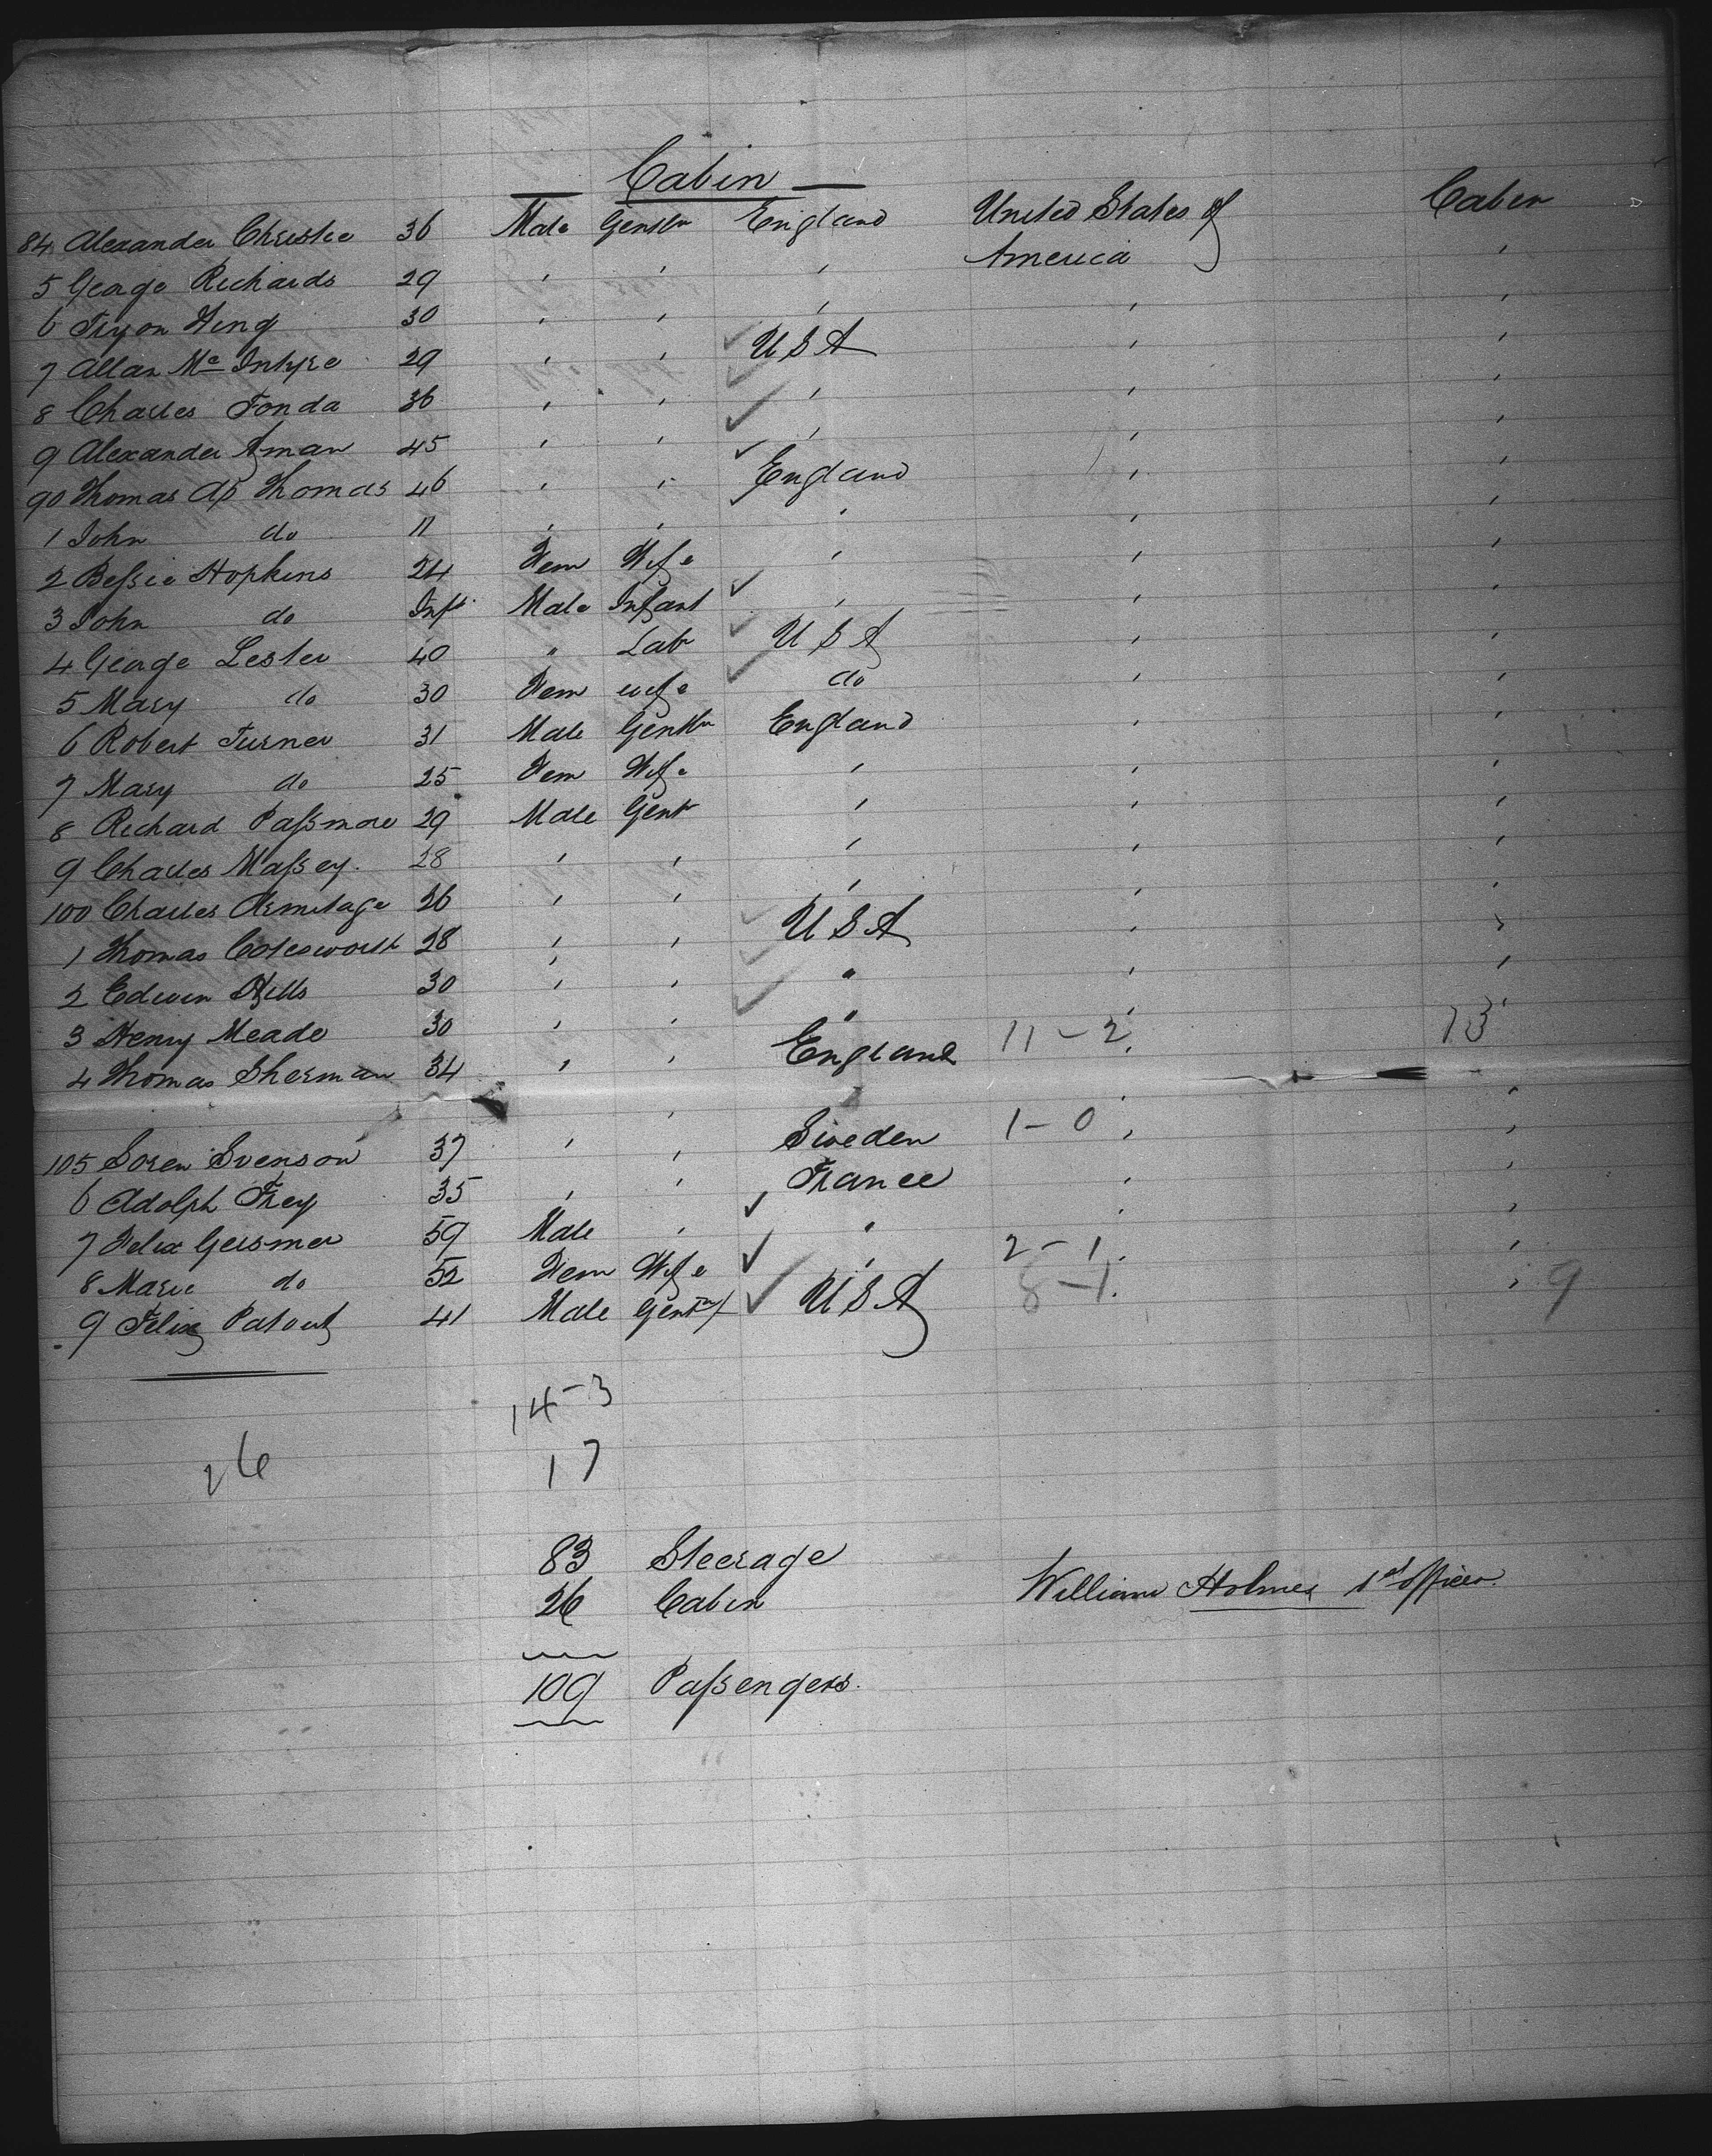 Cabin
84 Alexander Christie 36 Male Gentln England United States of America Cabin
5 George Richards 29 " " " "
6 Tryon King 30 " " " " "
7 Allan Mc Intyre 29 " " U S A " "
8 Charles Fonda 36 " " " " "
9 Alexander Aman 45 " " " " "
90 Thomas Ap Thomas 46 " " England " "
1 John do 11 " " " " "
2 Beſsie Hopkins 24 Fem Wife " " "
3 John do Inft Male Infant " " "
4 George Lester 40 " Labr U S A " "
5 Mary do 30 Fem wife do " "
6 Robert Turner 31 Male Gentln England " "
7 Mary do 25 Fem Wife " " "
8 Richard Paſsmore 29 Male Gent " " "
9 Charles Maſsey 28 " " " " "
100 Charles Armitage 26 " " " " "
1 Thomas Colesworth 28 " " U S A " "
2 Edwin Hills 30 " " " " "
3 Henry Meade 30 " " " " "
4 Thomas Sherman 34 " " England 11-2 13
105 Soren Svenson 37 " " Sweden 1-0 "
6 Adolph Frey 35 " " France " "
7 Felix Geismer 59 Male " " " "
8 Marie do 52 Fem Wife " 2-1 "
9 Felix Patout 41 Male Gentn U S A 8-1 " 9
14-3
26 17
83 Steerage
26 Cabin William Holmes 1st officer.
109 Paſsengers.